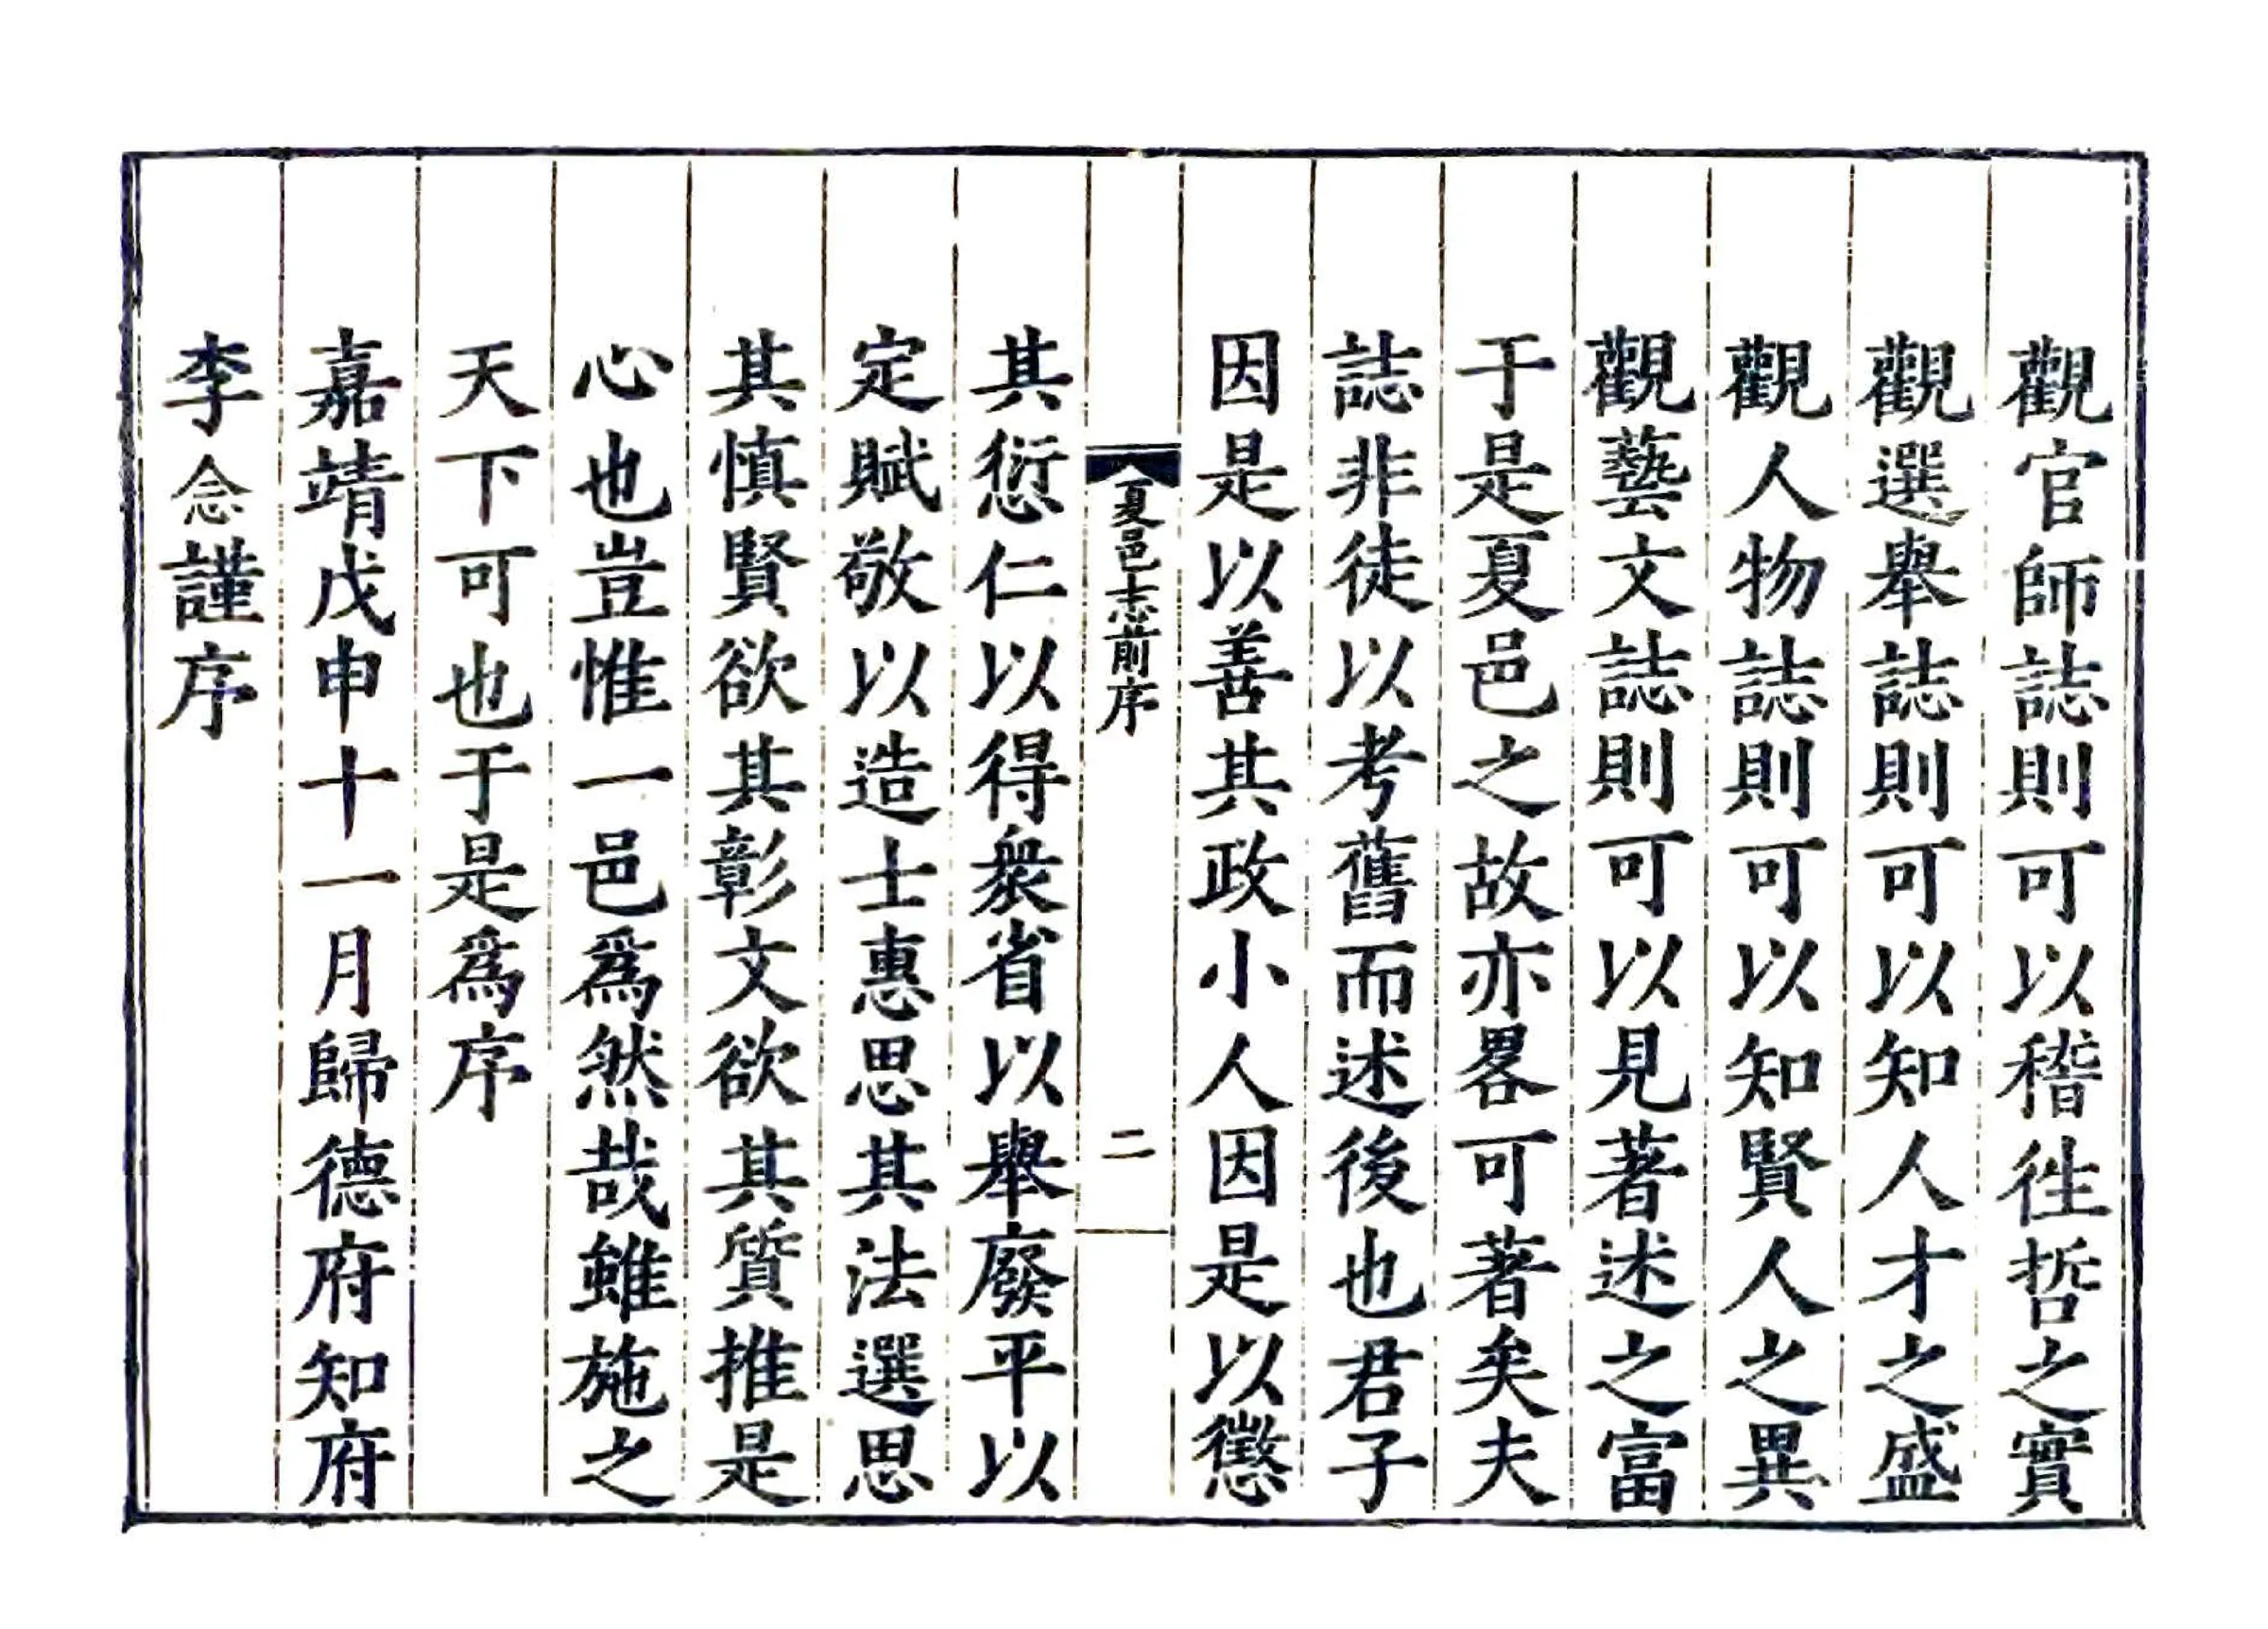 觀官師誌則可以稽徃哲之實
觀選舉誌則可以知人才之盛
觀人物誌則可以知賢人之異
觀藝文誌則可以見著述之富
于是夏邑之故亦畧可著矣夫
誌非徒以考舊而述後也君子
因是以善其政小人因是以懲
夏邑志前序 二
其愆仁以得衆省以舉廢平以
定賦敬以造士惠思其法選思
其慎賢欲其彰文欲其質推是
心也豈惟一邑爲然哉雖施之
天下可也于是爲序
嘉靖戊申十一月歸德府知府
李念謹序